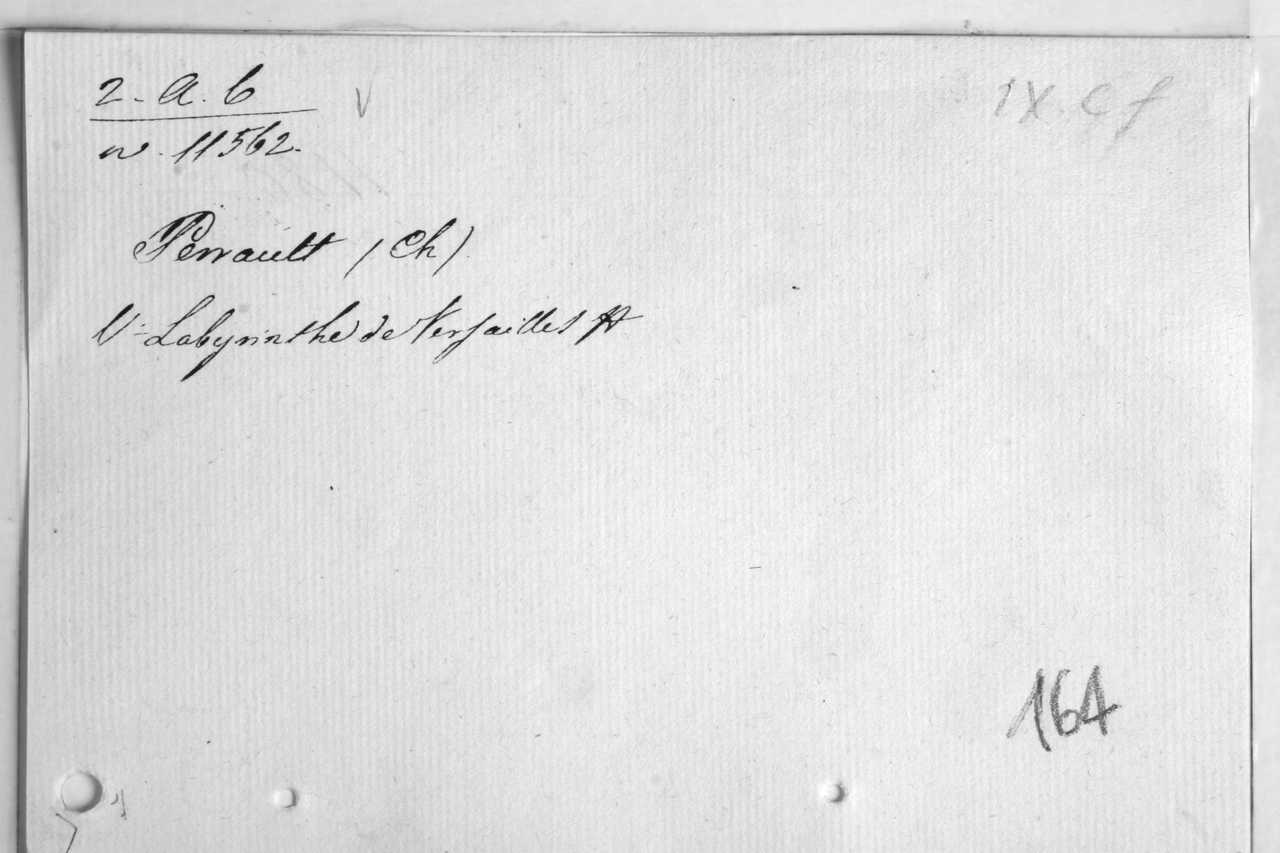 2. a. b
IX. C f
n. 11562.
Perrault (Ch)
V: Labyrinthe de Versailles
164